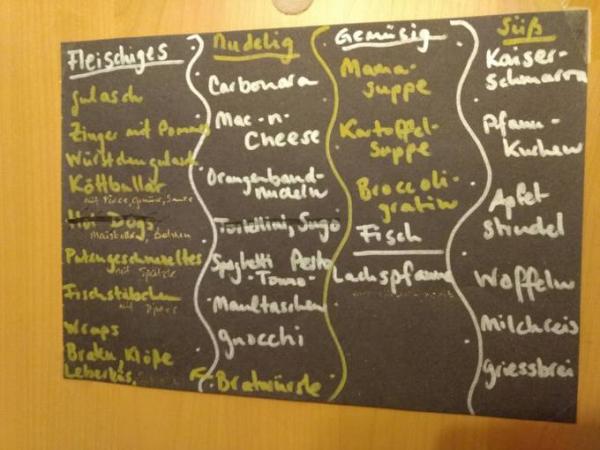 Fleischiges
Gulasch
Zinger mit Pommes
Würstchengulasch
Köttbullar
mit Püree, Gemüse, Sauce
Hot Dogs
Maiskolben, Bohnen
Putengeschnetzeltes
mit Spätzle
Fischstäbchen
mit
Wraps
Braten, Klöße
Leberkäs
Nudelig
Carbonara
Mac-n-
Cheese
Orangenband-
nudeln
Tortellini, Sugo
Spaghetti Pesto
-Tomo-
Maultaschen
Gnocchi
Bratwürste
Gemüsig
Mama-
suppe
Kartoffel-
suppe
Broccoli-
gratin
Fisch
Lachspfanne
Süß
Kaiser-
schmarrn
Pfann-
kuchen
Apfel
strudel
Waffeln
Milchreis
Griessbrei